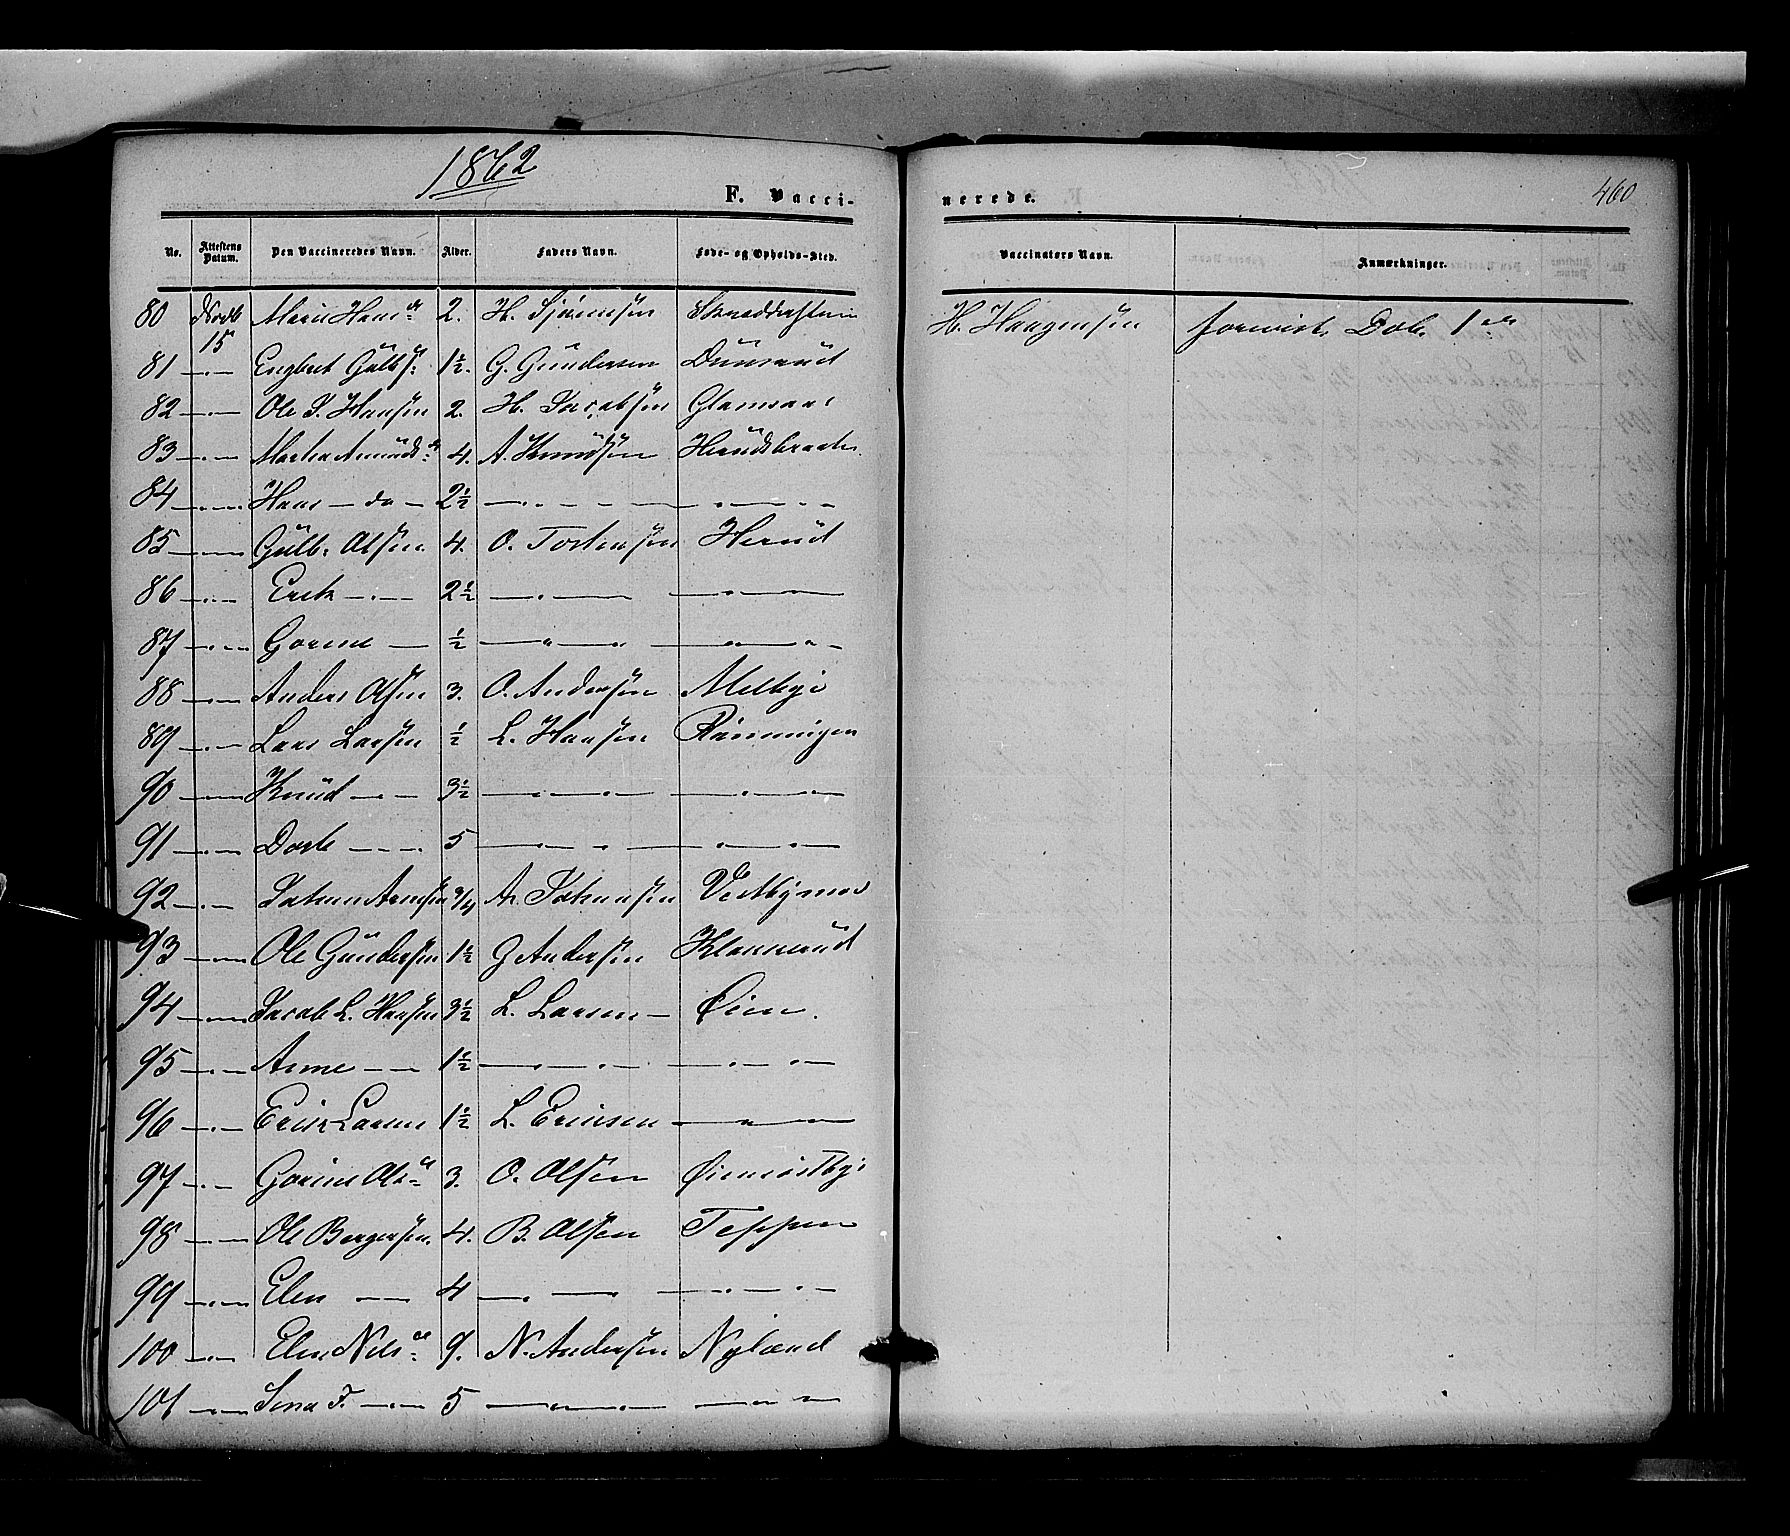 1862
460
F. Vacci-
nerede.
No. Attestens Datum. Den Vaccineredes Navn. Alder. Faders Navn. Føde- og Opholds-Sted.
Vaccinatørs Navn. Anmærkninger.
80 Marie Hans dr 2. H. H. Haagensen
15
81 — Engbret Gulbs. 1½. G. Gundersen
82 — Ole J. Hansen 2. H. Jacobsen Glamsaas
83 — Marthe Amunds dr 4. A. Knudsen Herudsbraaten
84 — Hans — do — 2½ — —
85 — Gulb. Olsen 4. O. Tostensen Herud
86 — Erik — 2½ — —
87 — Gorine — ½ — —
88 — Anders Olsen 3. O. Andersen Melbye
89 — Lars Larsen ½ L. Hansen Rønningen
90 — Knud — 3½ — —
91 — Dorte — 5 — —
92 — Johan Arnesen 3/4 A. Johansen
93 — Ole Gundersen 1½ G Andersen Klannerud
94 — Jacob L. Hansen 3½ L. Larsen — Øien.
95 — Arne — 1½ — —
96 — Erik Larsen 1½ L. Ericsen —
97 — Gorine Ols dr 3. O. Olsen
98 — Ole Bergersen. 4. B. Olsen Teppen
99 — Elen — 4 — —
100 — Elen Nils dr 9. N. Andersen Nyland
101 — 5 — —